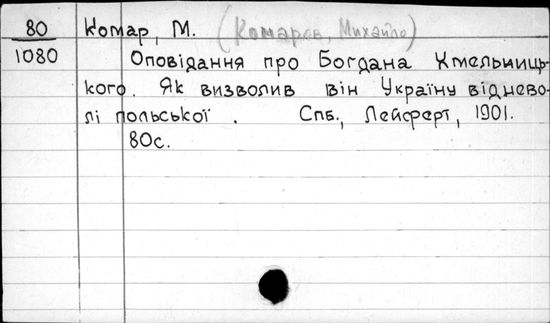 80 Комар, М. (Комаров, Михайло)
1080 Оповідання про Богдана Хмельниць-
кого. Як визволив він Україну від нево-
лі польської. Спб., Лейферт, 1901.
80с.